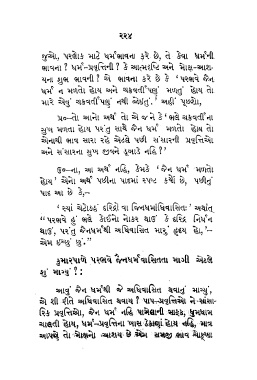 ૨૨૪
જુઓ, પરલોક માટે ધર્મભાવના કરે છે, તે કેવા ધર્મની
ભાવના ? ધર્મ-પ્રવૃત્તિની ? કે આત્મદૃષ્ટિ અને મોક્ષ-આશ-
યના શુભ ભાવની ? એ ભાવના કરે છે કે ‘પરભવે જૈન
ધર્મ ન મળતો હોય અને ચક્રવર્તીપણું મળતું હોય તો
મારે એવું ચક્રવર્તીપણું નથી જોઈતું.’ અહીં પૂછશો,
પ્ર૦—તો આનો અર્થ તો એ જ ને કે ‘ભલે ચક્રવર્તીના
સુખ મળતા હોય પરંતુ સાથે જૈન ધર્મ મળતો હોય તો
એનાથી ભાવ સારા રહે એટલે પછી સંસારની પ્રવૃત્તિઓ
અને સંસારના સુખ જીવને ડૂબાડે નહિ ?’
ઉ૦—ના, આ અર્થ નહિ, કેમકે ‘જૈન ધર્મ મળતો
હોય’ એનો અર્થ પછીના પાદમાં સ્પષ્ટ કર્યો છે, પછીનું
પાદ આ છે કે,-
‘સ્યાં ચેટોઽહં દરિદ્રો વા જિનધર્માધિવાસિતઃ’ અર્થાત્
“પરભવે હું ભલે કોઈનો નોકર થાઉં કે દરિદ્ર નિર્ધન
થાઉં, પરંતુ જૈનધર્મથી અધિવાસિત મારું હૃદય હો,’—
એમ ઇચ્છું છું.”
કુમારપાળે પરભવે જૈનધર્મવાસિતતા માગી એટલે
શું માગ્યું ? :
આવું જૈન ધર્મથી જે અધિવાસિત થવાનું માગ્યું,
એ શી રીતે અધિવાસિત થવાય ? પાપ-પ્રવૃત્તિઓ ને સાંસા-
રિક પ્રવૃત્તિઓ, જૈન ધર્મ નહિ પામેલાની માફક, ધુમધામ
ચાલતી હોય, ધર્મ-પ્રવૃત્તિના ખાસ ઠેકાણાં હોય નહિ, માત્ર
આપણે તો મોક્ષનો આશય છે એમ સમજી ભાવ